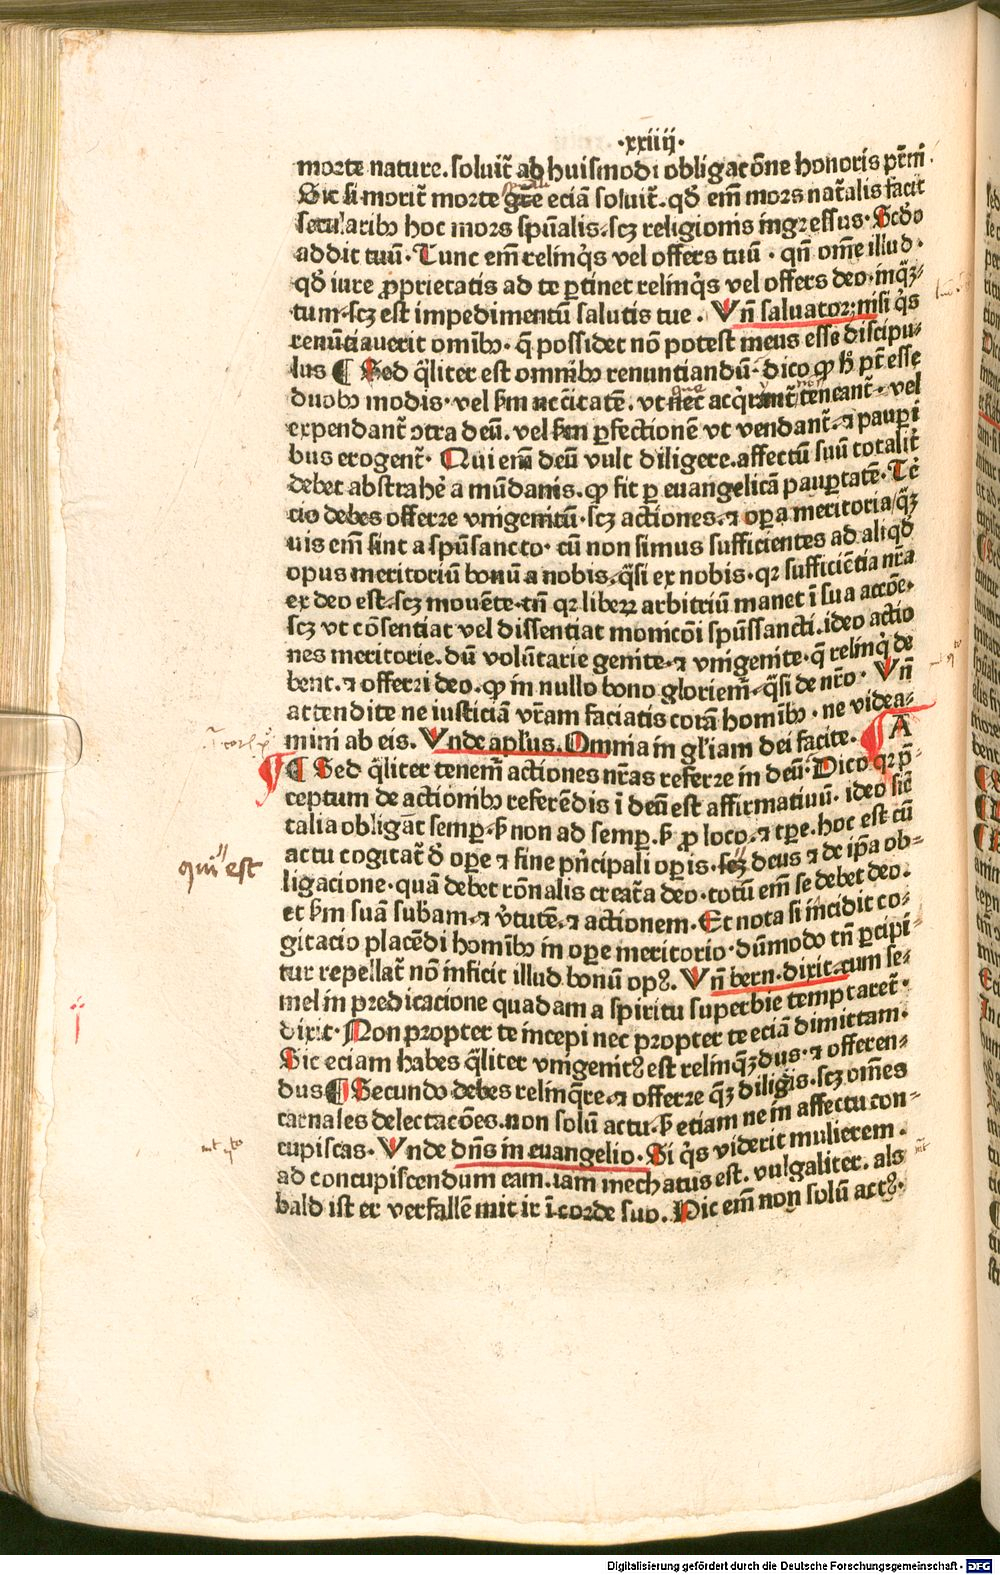 ·xxiiij·
morte nature. soluit̃ ab huiusmodi obligacōne honoris pr̄m̄.
Sic si morit̃ morte gr̄e eciā soluit̃. qd̓ em̄ mors nat̃alis facit
secularibꝫ hoc mors spūalis. scꝫ religionis ingressus. Scd̓o
addit tuū. Tunc em̄ relinqͥs vel offers tuū . qn̄ om̄e illud.
qd̓ iure ꝓprietatis ad te ꝑtinet relinqͥs vel offers deo. inqͣꝫ⸗
tum. scꝫ est impedimentū salutis tue . Vn̄ saluator; nisi qͥs
renūtiauerit omībꝫ . q̄ possidet nō potest meus esse discipu⸗
lus ¶ Sed qͣliter est omnibꝫ renuntiandū. dico ꝙ hͦ pt̄ esse
duobꝫ modis. vel sm̄ necc̄itatē. vt nec acqͥrant̃ teneant̃. vel
expendant̃ ↄtra deū. vel sm̄ ꝑfectionē vt vendant̃. ⁊ pauꝑi
bus erogent̃. Qui em̄ deū vult diligere. affectū suū totalit̃
debet abstrahe᷑ a mūdanis. ꝙ fit ꝑ euangelicā pauꝑtatē. Te᷑
cio debes offerre vnigenitū. scꝫ actiones. ⁊ oꝑa meritoria/qͣꝫ
uis em̄ sint a spūsancto. cū non simus sufficientes ad aliqd̓
opus meritoriū bonū a nobis. qͣsi ex nobis. qꝛ sufficiētia nr̄a
ex deo est. scꝫ mouēte. tn̄ qꝛ liberꝝ arbitriū manet ī sua accōe.
scꝫ vt cōsentiat vel dissentiat monicōi spūssancti. ideo actio
nes meritorie. dū volūtarie genite. ⁊ vnigenite. q̄ relinqͥ de
bent. ⁊ offerri deo. ꝙ in nullo bono gloriem̃. qͣsi de nr̄o . Vn̄
attendite ne iusticiā vr̄am faciatis corā homībꝫ . ne videa⸗
mini ab eis. Vnde apl̓us. Omnia in gl̓iam dei facite. A
¶ Sed qͣliter tenem̃ actiones nr̄as referre in deū. Dico qꝛ p̄⸗
ceptum de actionibꝫ referēdis ī deū est affirmatiuū. ideo sic̄
talia obligāt semꝑ. sꝫ non ad semꝑ. sꝫ ꝓ loco. ⁊ tꝑe. hoc est cū
actu cogitat̃ d̓ oꝑe ⁊ fine pͥncipali oꝑis. scꝫ deus ⁊ de ip̄a ob⸗
qui est
ligacione. quā debet rōnalis creat̃a deo. totū em̄ se debet deo.
et sm̄ suā subam. ⁊ v̓tutē. ⁊ actionem. Et nota si incidit co⸗
gitacio placēdi homībꝫ in oꝑe meritorio. dūmodo tn̄ ꝑcipi⸗
tur repellat̃ nō inficit illud bonū opꝰ. Vn̄ bern. dixit. cum se⸗
mel in predicacione quadam a spiritu superbie temptaret̃.
dixit. Non propter te incepi nec propter te eciā dimittam.
Sic eciam habes qͣliter vnigenitꝰ est relinqͣꝫdus. ⁊ offeren⸗
dus ¶ Secundo debes relinqͣre. ⁊ offerre qͣꝫ diligis. scꝫ om̄es
carnales delectacōes. non solū actu. sꝫ etiam ne in affectu con⸗
cupiscas. Vnde dn̄s in euangelio. Si qͥs viderit mulierem.
ad concupiscendum eam. iam mechatus est. vulgaliter. als
bald ist er verfallē mit ir ī corde suo. Hic em̄ non solū actꝰ.